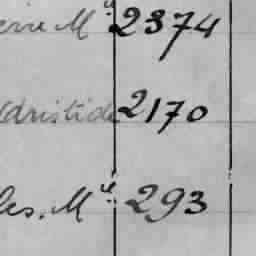 erre M.elle 2374
Aristide 2170
les. M.elle 293